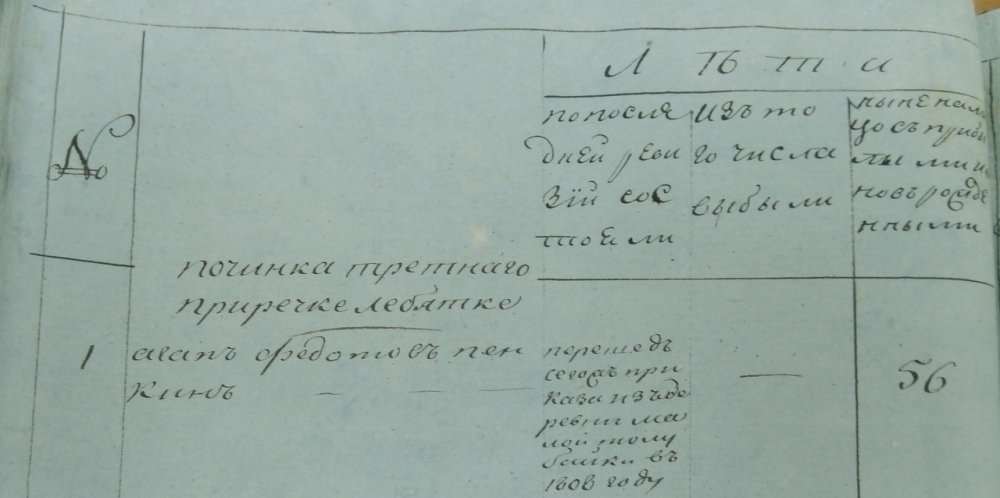 №
Лѣта
по после
дней реви
зїи сос
тоели
изъ то
го числа
выбыли
ныне нали
цо съ прибы
лыми и
новърожде
нными
починка третнаго
приречке лебятке
1 агапъ Федотовъ пен
кинъ — — —
перешедъ
сегожъ при
каза изъ де
ревни ма
лой толу
бейки въ
1808 году
—
56